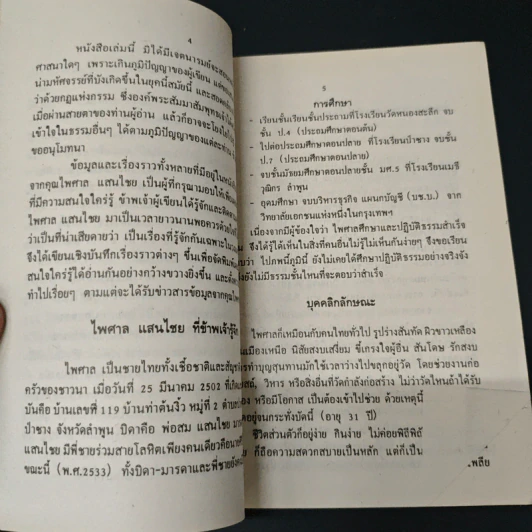 4
หนังสือเล่มนี้ มิได้มีเจตนารมย์จะสอน
ศาสนาใดๆ เพราะเกินภูมิปัญญาของผู้เขียน
น่ามหัศจรรย์ที่บังเกิดขึ้นในยุคนี้สมัยนี้
ว่าด้วยกฎแห่งกรรม ซึ่งองค์พระสัมมาสัมพุทธเจ้า
เมื่อผ่านสายตาของท่านผู้อ่าน แล้วก็อาจจะโยง
เข้าใจในธรรมอื่นๆ ได้ตามภูมิปัญญาของแต่ละท่าน
ขออนุโมทนา
ข้อมูลและเรื่องราวทั้งหลายที่มีอยู่ใน
จากคุณไพศาล แสนไชย เป็นผู้ที่กรุณามอบให้
ที่มีความสนใจใคร่รู้ ข้าพเจ้าผู้เขียนได้รู้จักและ
ไพศาล แสนไชย มาเป็นเวลายาวนานพอควร
ว่าเป็นที่น่าเสียดายว่า เป็นเรื่องที่รู้จักกันเฉพาะใน
จึงได้เขียนเชิงบันทึกเรื่องราวต่างๆ ขึ้นเพื่อ
สนใจใคร่รู้ได้อ่านกันอย่างกว้างขวางยิ่งขึ้น
ทำไปเรื่อยๆ ตามแต่จะได้รับข่าวสารข้อมูลจาก
ไพศาล แสนไชย ที่ข้าพเจ้ารู้จัก
ไพศาล เป็นชายไทยทั้งเชื้อชาติและ
ครัวของชาวนา เมื่อวันที่ 25 มีนาคม 2502
บันคือ บ้านเลขที่ 119 บ้านท่าต้นงิ้ว หมู่ที่ 2
ป่าซาง จังหวัดลำพูน บิดาคือ พ่อสม แสนไชย
แสนไชย มีพี่ชายร่วมสายโลหิตเพียงคนเดียวคือ
ขณะนี้ (พ.ศ.2533) ทั้งบิดา-มารดาและพี่ชาย
5
การศึกษา
- เรียนชั้นเรียนชั้นประถมที่โรงเรียนวัดหนองสะลีก จบ
ชั้น ป.4 (ประถมศึกษาตอนต้น)
- ไปต่อประถมศึกษาตอนปลาย ที่โรงเรียนป่าซาง จบชั้น
ป.7 (ประถมศึกษาตอนปลาย)
- จบชั้นมัธยมศึกษาตอนปลายชั้น มศ.5 ที่โรงเรียนเมธี
วุฒิกร ลำพูน
- อุดมศึกษา จบบริหารธุรกิจ แผนกบัญชี (บช.บ.) จาก
วิทยาลัยเอกชนแห่งหนึ่งในกรุงเทพฯ
เนื่องจากมีผู้ข้องใจว่า ไพศาลศึกษาและปฏิบัติธรรมสำเร็จ
จึงได้รู้ได้เห็นในสิ่งที่คนอื่นไม่รู้ไม่เห็นกันง่ายๆ จึงขอเรียน
ไปภพนี้ภูมินี้ ยังไม่เคยได้ศึกษาปฏิบัติธรรมอย่างจริงจัง
ยังไม่มีธรรมชั้นไหนที่จะตอบว่าสำเร็จ
บุคคลิกลักษณะ
ไพศาลก็เหมือนกับคนไทยทั่วไป รูปร่างสันทัด ผิวขาวเหลือง
นิสัยสงบเสงี่ยม ขี้เกรงใจผู้อื่น สันโดษ รักสงบ
ทำบุญสุนทานมักใช้เวลาว่างไปขลุกอยู่วัด โดยช่วยงานก่อ
วิหาร หรือสิ่งอื่นที่วัดกำลังก่อสร้าง ไม่ว่าวัดไหนถ้าได้รับ
หรือมีโอกาส เป็นต้องเข้าไปช่วย ด้วยเหตุนี้
อยู่จนกระทั่งบัดนี้ (อายุ 31 ปี)
ชีวิตส่วนตัวก็อยู่ง่าย กินง่าย ไม่ค่อยพิถีพิถัน
ก็ถือความสะดวกสบายเป็นหลัก แต่ก็เป็น